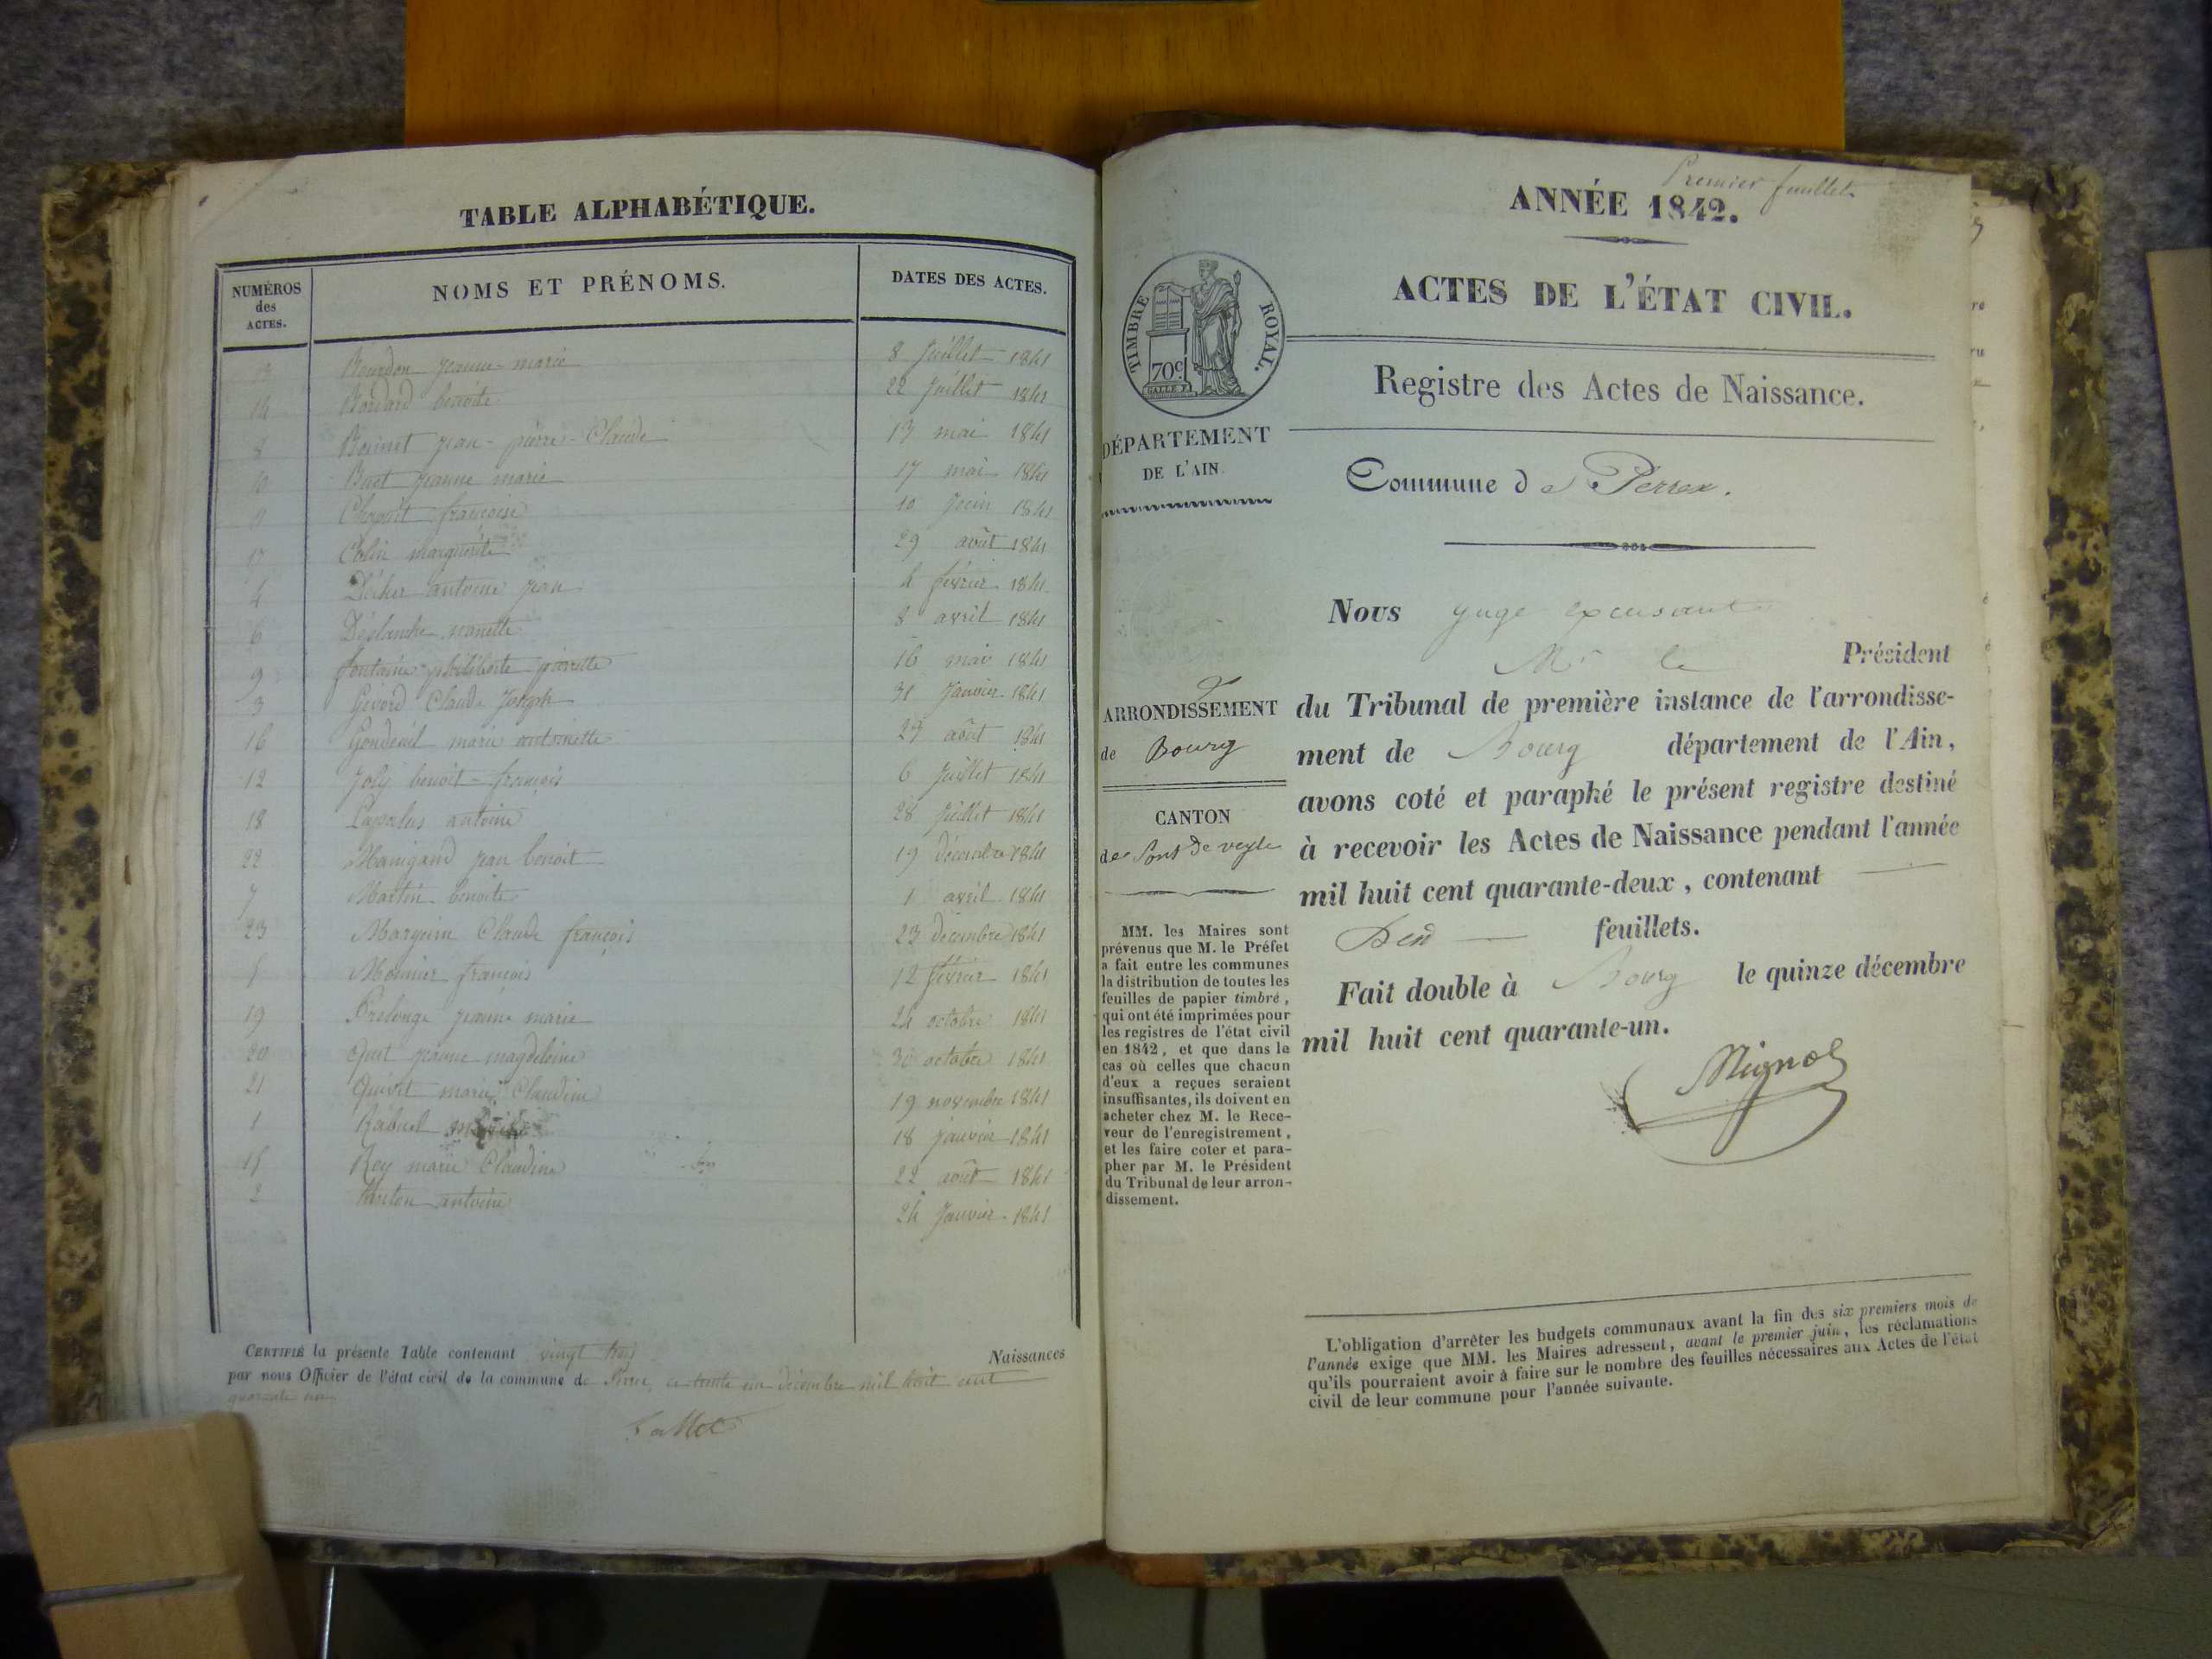 TABLE ALPHABÉTIQUE.
NUMÉROS
des
ACTES.
NOMS ET PRÉNOMS.
DATES DES ACTES.
Bourdon jeanne-marie 8 juillet 1841
14 benoite 22 juillet 1841
8 jean-pierre-Claude 13 mai 1841
10 Buat jeanne marie 17 mai 1841
françoise 10 juin 1841
17 Colin marguerite 29 août 1841
4 antoine jean 4 février 1841
6 8 avril 1841
9 fontaine philiberte pierrette 16 mai 1841
3 Claude Joseph 31 janvier 1841
16 marie antoinette 23 août 1841
12 Joly benoit-françois 6 juillet 1841
18 antoine 28 juillet 1841
22 Manigand jean benoit 19 décembre 1841
7 Martin benoite 1 avril 1841
23 Marguin Claude françois 23 décembre 1841
5 Monnier françois 12 février 1841
19 Prelonge jeanne marie 24 octobre 1841
20 jeanne magdeleine 30 octobre 1841
21 marie Claudine 19 novembre 1841
1 Rabuel 18 janvier 1841
15 Rey marie Claudine 22 août 1841
2 antoine 24 janvier 1841
CERTIFIÉ la présente Table contenant vingt trois Naissances
par nous Officier de l'état civil de la commune de ce trente un décembre mil huit cent
quarante un
Premier feuillet
ANNÉE 1842.
ACTES DE L'ÉTAT CIVIL.
TIMBRE ROYAL.
70c
Registre des Actes de Naissance.
DÉPARTEMENT
DE L'AIN.
Commune de Perrex.
Nous juge excusant
Mr le Président
du Tribunal de première instance de l'arrondisse-
ment de Bourg département de l'Ain,
avons coté et paraphé le présent registre destiné
à recevoir les Actes de Naissance pendant l'année
mil huit cent quarante-deux, contenant
feuillets.
Fait double à Bourg le quinze décembre
mil huit cent quarante-un.
ARRONDISSEMENT
de Bourg
CANTON
de Pont de veyle
MM. les Maires sont
prévenus que M. le Préfet
a fait entre les communes
la distribution de toutes les
feuilles de papier timbré,
qui ont été imprimées pour
les registres de l'état civil
en 1842, et que dans le
cas où celles que chacun
d'eux a reçues seraient
insuffisantes, ils doivent en
acheter chez M. le Rece-
veur de l'enregistrement,
et les faire coter et para-
pher par M. le Président
du Tribunal de leur arron-
dissement.
L'obligation d'arrêter les budgets communaux avant la fin des six premiers mois de
l'année exige que MM. les Maires adressent, avant le premier juin, les réclamations
qu'ils pourraient avoir à faire sur le nombre des feuilles nécessaires aux Actes de l'état
civil de leur commune pour l'année suivante.